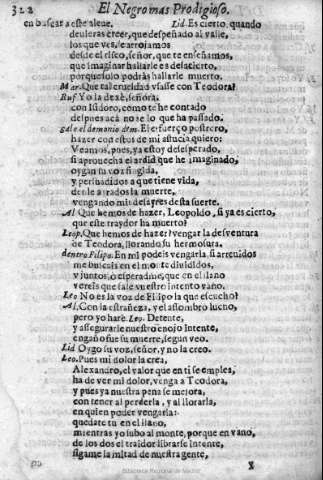 322 El Negro mas Prodigioso.
en buscar a este aleue. Lid. Es cierto, quando
deuieras creer, que despeñado al valle,
los que ves, le arrojamos
desde el risco, señor, que te enseñamos,
que imaginar hallarle es desacierto,
porque solo podràs hallarle muerto.
Mar. Que tal crueldad vsasse con Teodora!
Ruf. Yo la dexè, señora,
con Isidoro, como te he contado
despues acà no se lo que ha passado.
Sale el demonio dem. El esfuerço postrero,
hazer con estos de mi astucia quiero:
Veamos, pues, ya estoy desesperado,
si aprouecha el ardid que he imaginado,
oygan su voz fingida,
y persuadidos a que tiene vida,
denle airados la muerte,
vengando mis desayres desta suerte.
Al. Que hemos de hazer, Leopoldo, si ya es cierto,
que este traydor ha muerto?
Leop. Que hemos de hazer? vengar la desventura
de Teodora, llorando su hermosura.
dentro Filipo. En mi podeis vengarla, si atreuidos
me buscais en el monte diuididos,
y juntos, o esperadme, que en el llano
vereis que sale vuestro intento vano.
Leo. No es la voz de Filipo la que escucho?
Al. Con la estrañeza, y el assombro lucho,
pero yo harè. Leo. Detente,
y assegurarle nuestro enojo intente,
engaño fue su muerte, segun veo.
Lid. Oygo su voz, señor, y no la creo.
Leo. Pues mi dolor la crea,
Alexandro, el valor que en ti se emplea,
ha de ver mi dolor, venga a Teodora,
y pues ya nuestra pena se mejora,
con tener al perderla, y al llorarla,
en quien poder vengarla:
quedate tu en el llano,
mientras yo subo al monte, porque en vano,
de los dos el traidor librarse intente,
sigame la mitad de nuestra gente,
X
Biblioteca Nacional de Madrid